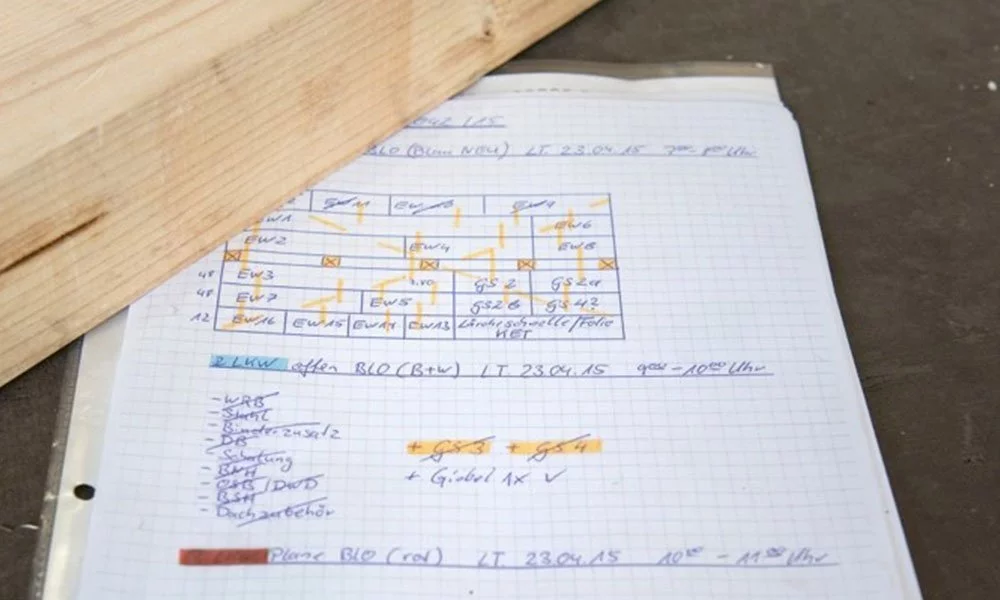 BLO (Blau NEU) LT. 23.04.15 7⁰⁰ - 8⁰⁰ Uhr
EW4
EW1 EW6
EW2 EW4 EW8
48 EW3 GS 2 GS2a
48 EW7 EW5 GS2b GS4?
12 EW16 EW15 EW14 EW13 Lärcheschwelle/Folie
KET
2 LKW offen BLO (B+W) LT. 23.04.15 9⁰⁰ - 10⁰⁰ Uhr
- WRB
- Stahl
- Binderzusatz
- DB
- Schalung + GS3 + GS4
- BNH + Giebel 1x ✓
- OSB / DWD
- BSH
- Dachzubehör
Plane BLO (rot) LT. 23.04.15 10⁰⁰ - 11⁰⁰ Uhr